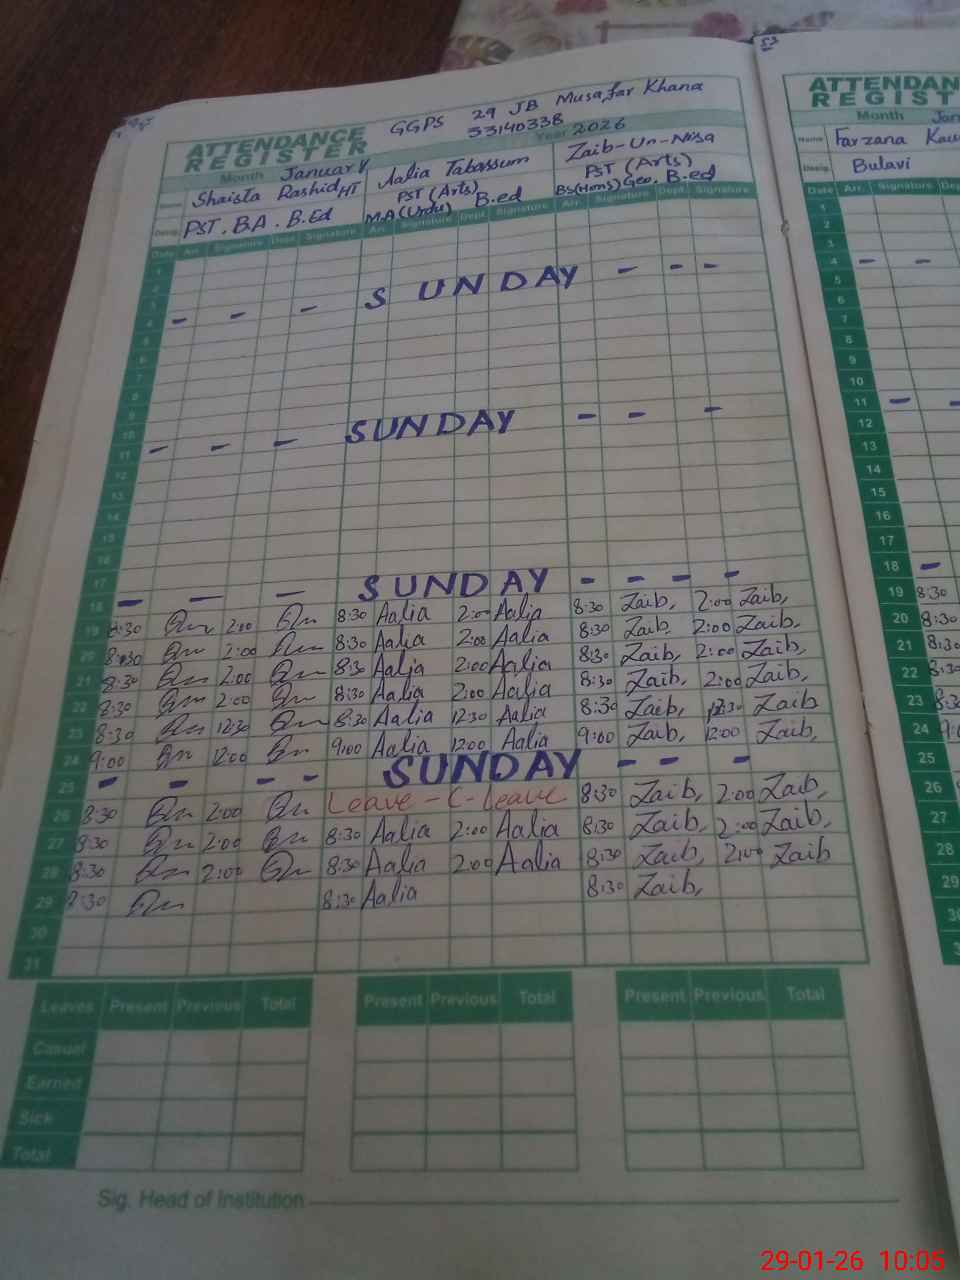 53
ATTENDANCE
REGISTER
GGPS 29 JB Musafar Khana
33140338
Month January Year 2026
Shaista Rashid HT Aalia Tabassum Zaib-Un-Nisa
PST (Arts) PST (Arts)
Desig. PST. B.A. B.Ed M.A (Urdu) B.ed BS(Hons) Geo, B.ed
Date Arr. Signature Dept. Signature Arr. Signature Dept. Signature Arr. Signature Dept. Signature
1
2
3
4 - - - SUNDAY - - -
5
6
7
8
9
10
11 - - - SUNDAY - - -
12
13
14
15
16
17
18 - - - SUNDAY - - - -
19 8:30 2:00 8:30 Aalia 2:00 Aalia 8:30 Zaib, 2:00 Zaib,
20 8:30 2:00 8:30 Aalia 2:00 Aalia 8:30 Zaib, 2:00 Zaib,
21 8:30 2:00 8:30 Aalia 2:00 Aalia 8:30 Zaib, 2:00 Zaib,
22 8:30 2:00 8:30 Aalia 2:00 Aalia 8:30 Zaib, 2:00 Zaib,
23 8:30 12:30 8:30 Aalia 12:30 Aalia 8:30 Zaib, 12:30 Zaib
24 9:00 12:00 9:00 Aalia 12:00 Aalia 9:00 Zaib, 12:00 Zaib,
25 - - - - SUNDAY - - -
26 8:30 2:00 Leave - C - Leave 8:30 Zaib, 2:00 Zaib,
27 8:30 2:00 8:30 Aalia 2:00 Aalia 8:30 Zaib, 2:00 Zaib,
28 8:30 2:00 8:30 Aalia 2:00 Aalia 8:30 Zaib, 2:00 Zaib
29 8:30 8:30 Aalia 8:30 Zaib,
30
31
Leaves Present Previous Total Present Previous Total Present Previous Total
Casual
Earned
Sick
Total
Sig. Head of Institution
ATTENDAN
REGIST
Month Jan
Name Farzana Kau
Desig. Bulavi
Date Arr. Signature Dep
1
2
3
4 - -
5
6
7
8
9
10
11 - -
12
13
14
15
16
17
18 -
19 8:30
20 8:30
21 8:30
22 8:30
23 8:3
24 9:0
25
26
27
28
29
29-01-26 10:05